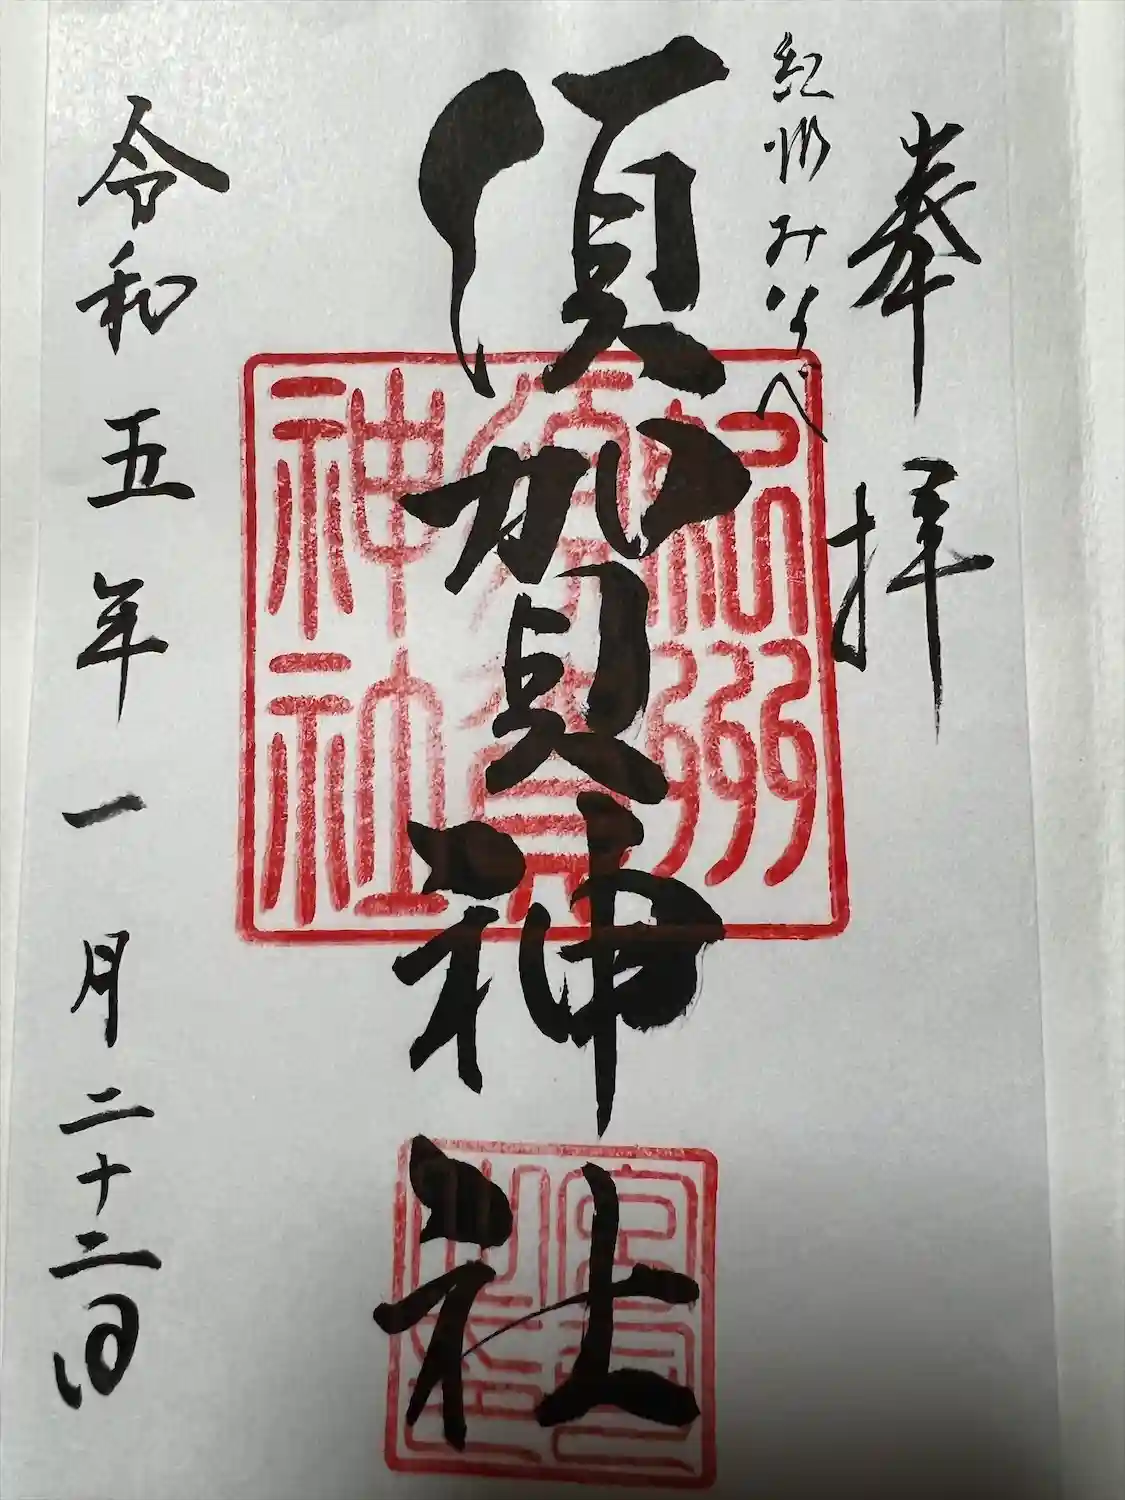 奉拝
紀州みなべ
須賀神社
令和五年一月二十二日
紀州
須賀
神社
宮司
之印